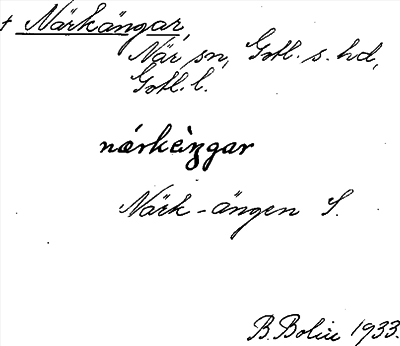 + Närkängar,
När sn, Gotl. s. hd,
Gotl. l.
nærkèŋgar
Närk-ängen S.
B. Bolin 1933.